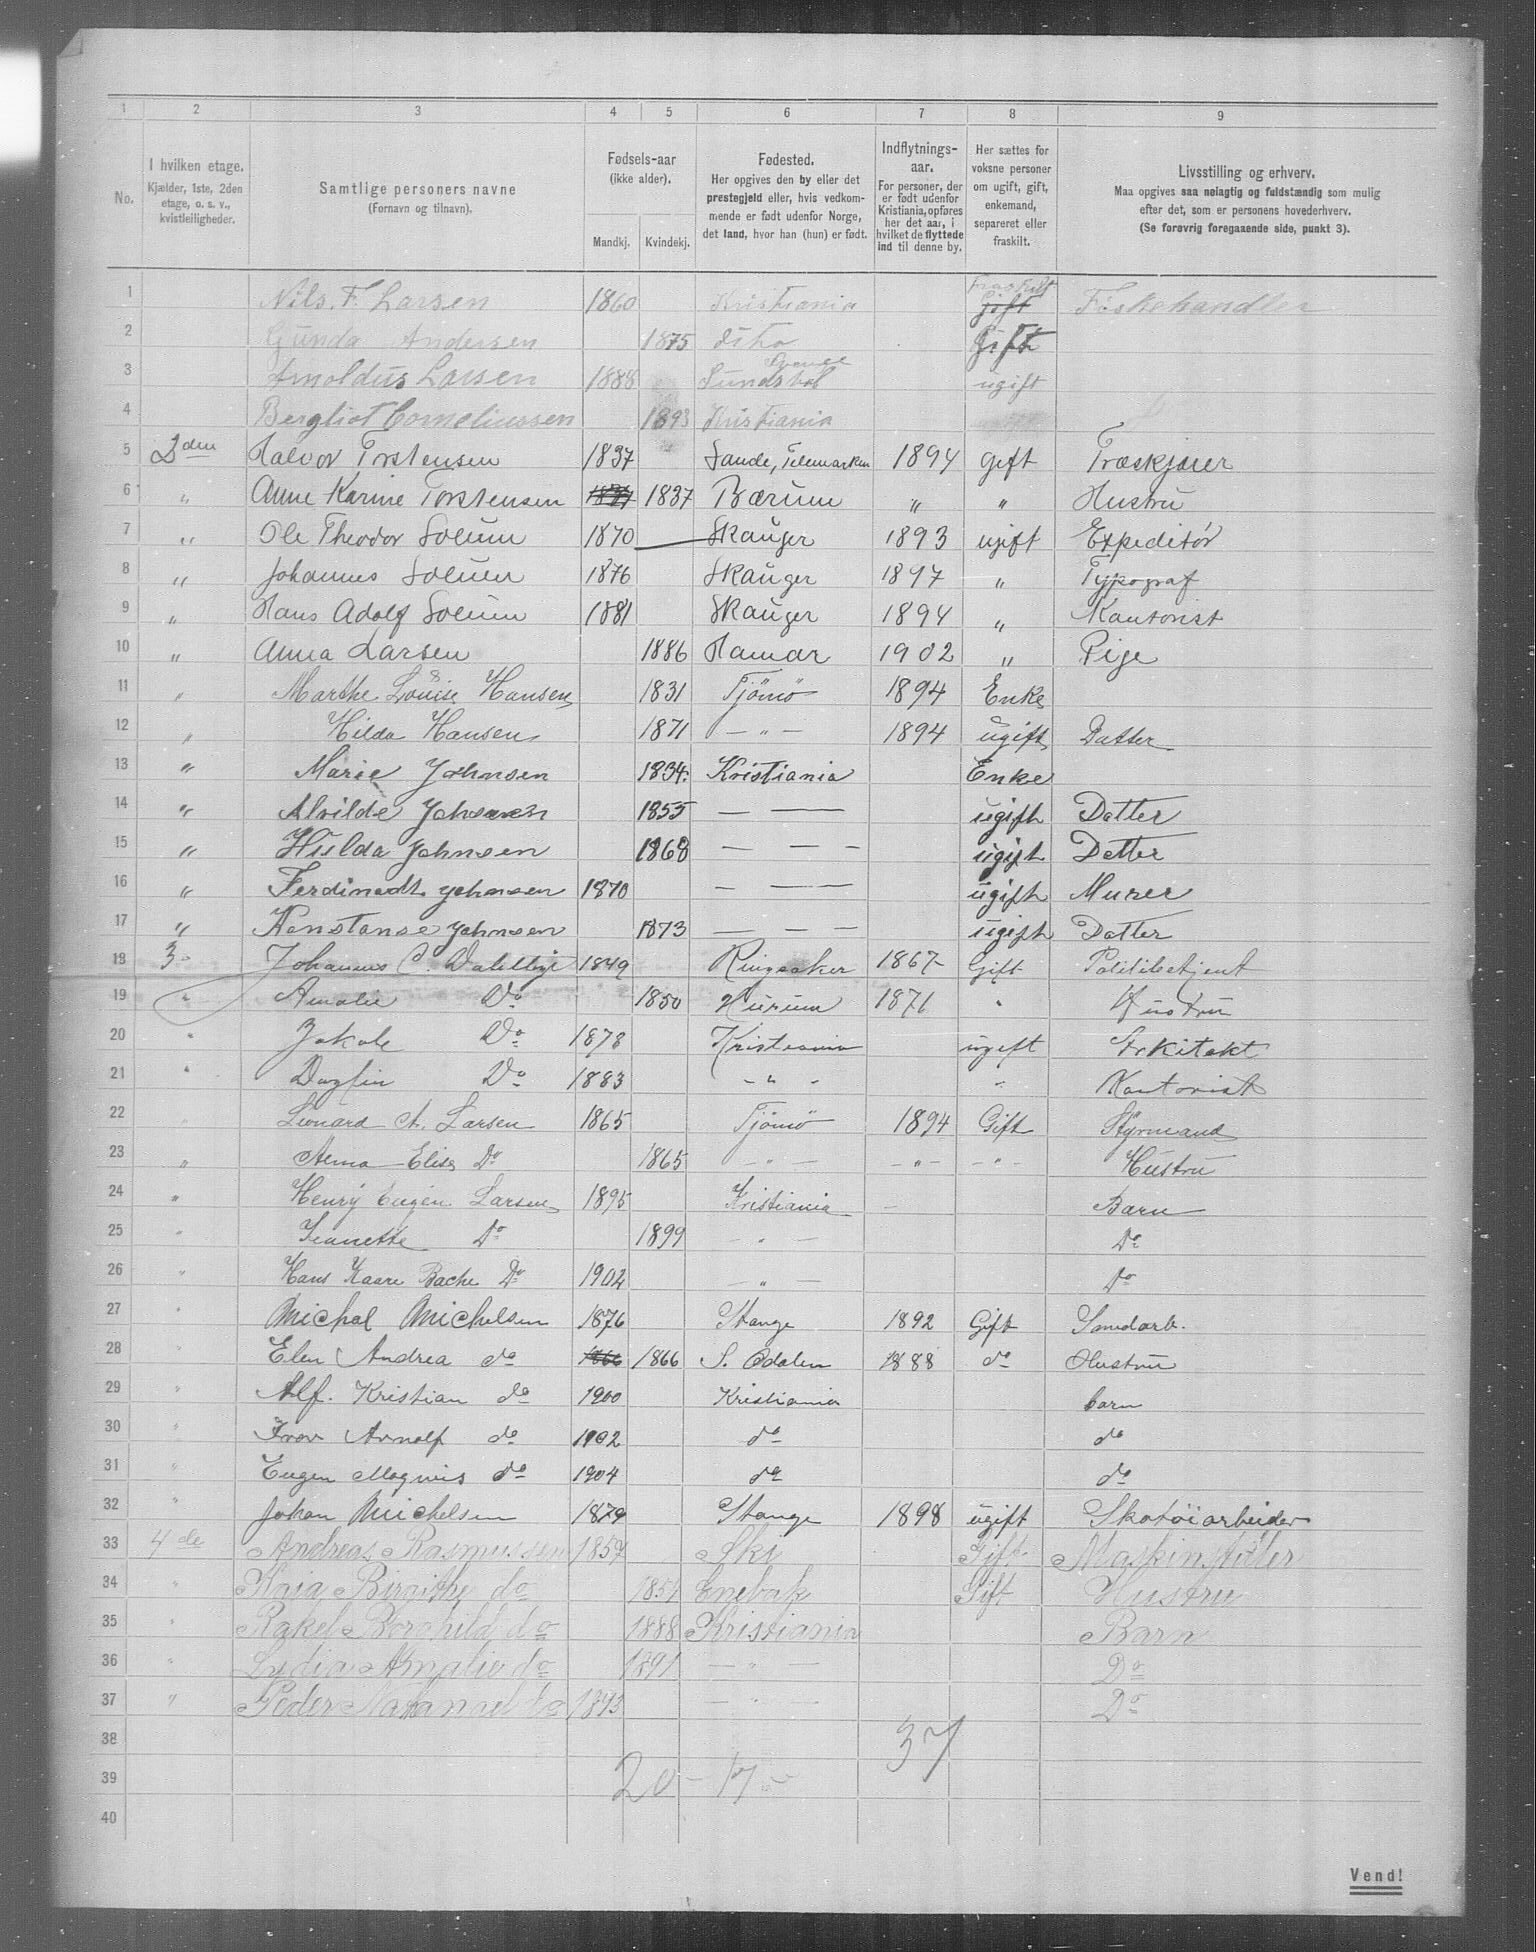 1 2 3 4 5 6 7 8 9
No.
I hvilken etage.
Kjælder, 1ste, 2den
etage, o. s. v.,
kvistleiligheder.
Samtlige personers navne
(Fornavn og tilnavn).
Fødsels-aar
(ikke alder).
Mandkj. Kvindekj.
Fødested.
Her opgives den by eller det
prestegjeld eller, hvis vedkom-
mende er født udenfor Norge,
det land, hvor han (hun) er født.
Indflytnings-
aar.
For personer, der
er født udenfor
Kristiania, opføres
her det aar, i
hvilket de flyttede
ind til denne by.
Her sættes for
voksne personer
om ugift, gift,
enkemand,
separeret eller
fraskilt.
Livsstilling og erhverv.
Maa opgives saa nøiagtig og fuldstændig som mulig
efter det, som er personens hovederhverv.
(Se forøvrig foregaaende side, punkt 3).
1 Nils. F. Larsen 1860 Kristiania Gift Fraskilt Fiskehandler
2 Gunda Andersen 1875 dito Gift
3 Arnoldus Larsen 1888 Sundsvol ugift
4 Bergliot Corneliussen 1893 Kristiania
5 2den Halvor Torstensen 1837 Sande, Telemarken 1894 gift Træskjærer
6 " Anne Karine Torstensen 1837 Bærum " " Hustru
7 " Ole Theodor Solum 1870 Skauger 1893 ugift Expeditør
8 " Johannes Solum 1876 Skauger 1897 " Typograf
9 " Hans Adolf Solum 1881 Skauger 1894 " Kantorist
10 " Anna Larsen 1886 Hamar 1902 " Pige
11 " Marthe Louise Hansen 1831 Tjömö 1894 Enke
12 " Hilda Hansen 1871 — " — 1894 ugift Datter
13 " Marie Johnsen 1834. Kristiania Enke
14 " Alvilde Johnsen 1855 — — ugift Datter
15 " Hulda Johnsen 1868 — — — ugift Datter
16 " Ferdinadt Johnsen 1870 — — — ugift Murer
17 " Konstanse Johnsen 1873 — — — ugift Datter
18 3 Johannes C. 1849 Ringsaker 1867 Gift Politibetjent
19 " Amalie Do 1850 Hurum 1871 " Hustru
20 " Jakob Do 1878 Kristiania ugift Arkitekt
21 " Dagfin Do 1883 - " - " Kontorist
22 " Leonard A. Larsen 1865 Tjömö 1894 Gift Styrmand
23 " Anna Elise Do 1865 — " — — " — - " - Hustru
24 " Henry Eugen Larsen 1895 Kristiania — Barn
25 " Jeanette Do 1899 - " — Do
26 " Hans Kaare Bache Do 1902 — " — Do
27 " Michal Michelsen 1876 Stange 1892 Gift Smedarb.
28 " Elen Andrea do 1866 1866 S. Odalen 1888 do Hustru
29 " Alf. Kristian do 1900 Kristiania barn
30 " Ivar Arnolf do 1902 do do
31 " Eugen Magnus do 1904 do do
32 " Johan Michelsen 1879 Stange 1898 ugift Skotöiarbeider
33 4de Andreas Rasmussen 1857 Ski Gift Maskinstiller
34 " Kaia Birgithe do 1857 Enebak Gift Hustru
35 " Rakel Borghild do 1888 Kristiania Barn
36 " Lydia Amalie do 1891 — " — Do
37 " Peder Natanael do 1893 — " — Do
38 37
39 20 - 17
40
Vend!